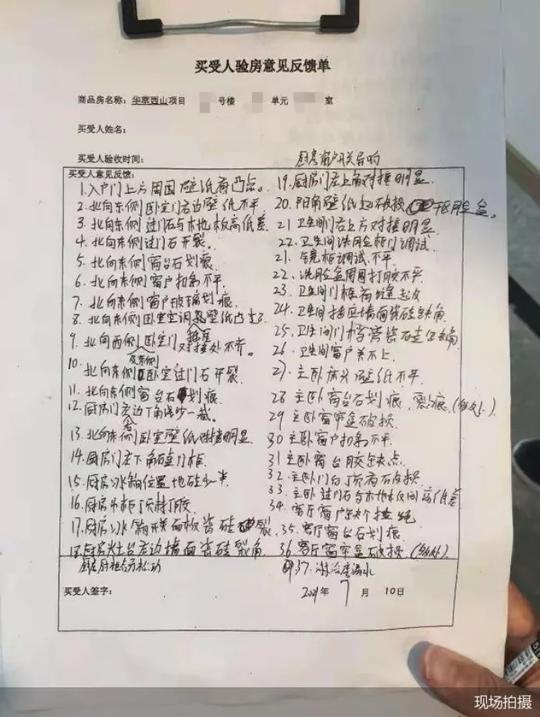 买受人验房意见反馈单
商品房名称: 华萃西山项目 号楼 单元 室
买受人姓名:
买受人验收时间:
买受人意见反馈:
厨房窗户开关异响
1.入户门上方周围壁纸有凸点。
2.北向东侧卧室门右边壁纸不平
3.北向东侧过门石与木地板高低差
4.北向东侧过门石开裂.
5.北向东侧窗台石划痕
6.北向东侧窗户扣条不平
7.北向东侧窗户玻璃划痕
8.北向东侧卧室空调壁纸凸
9.北向西侧卧室门 对接处不齐
及东侧
10.北向东侧卧室过门石开裂
11.北向东侧窗台石划痕
12.厨房门左边 角 少一截
13.北向东侧卧室壁纸 接明显
14.厨房门左下角 门柜
15.厨房冰箱位置地砖少一半
16.厨房吊柜顶封打胶
17.厨房冰箱 面板瓷砖 裂
18.厨房灶台左边墙面瓷砖裂角
厨房厨柜 松动
19.厨房门左上角对接明显
20.阳角壁纸 破损
21.卫生间门右上方对接明显
22.卫生间洗脸柜门调试
21.镜柜调试.不平
22.洗脸盆周围打胶不平
23.卫生间门框有缝
24.卫生间 墙面瓷砖缺角
25.卫生间门 瓷砖 缺角
26.卫生间窗户关不上
27.主卧床头壁纸不平
28 主卧窗台石划痕
29 主卧窗帘盒破损
30 主卧窗户扣条不平
31 主卧窗台胶缺点
32.主卧门 石破损
33.主卧过门石与木地板间高低差
34.客厅窗户
35.客厅窗台石划痕
36.客厅窗帘盒破损
37. 漏水
买受人签字:
2021年 7 月 10日
现场拍摄